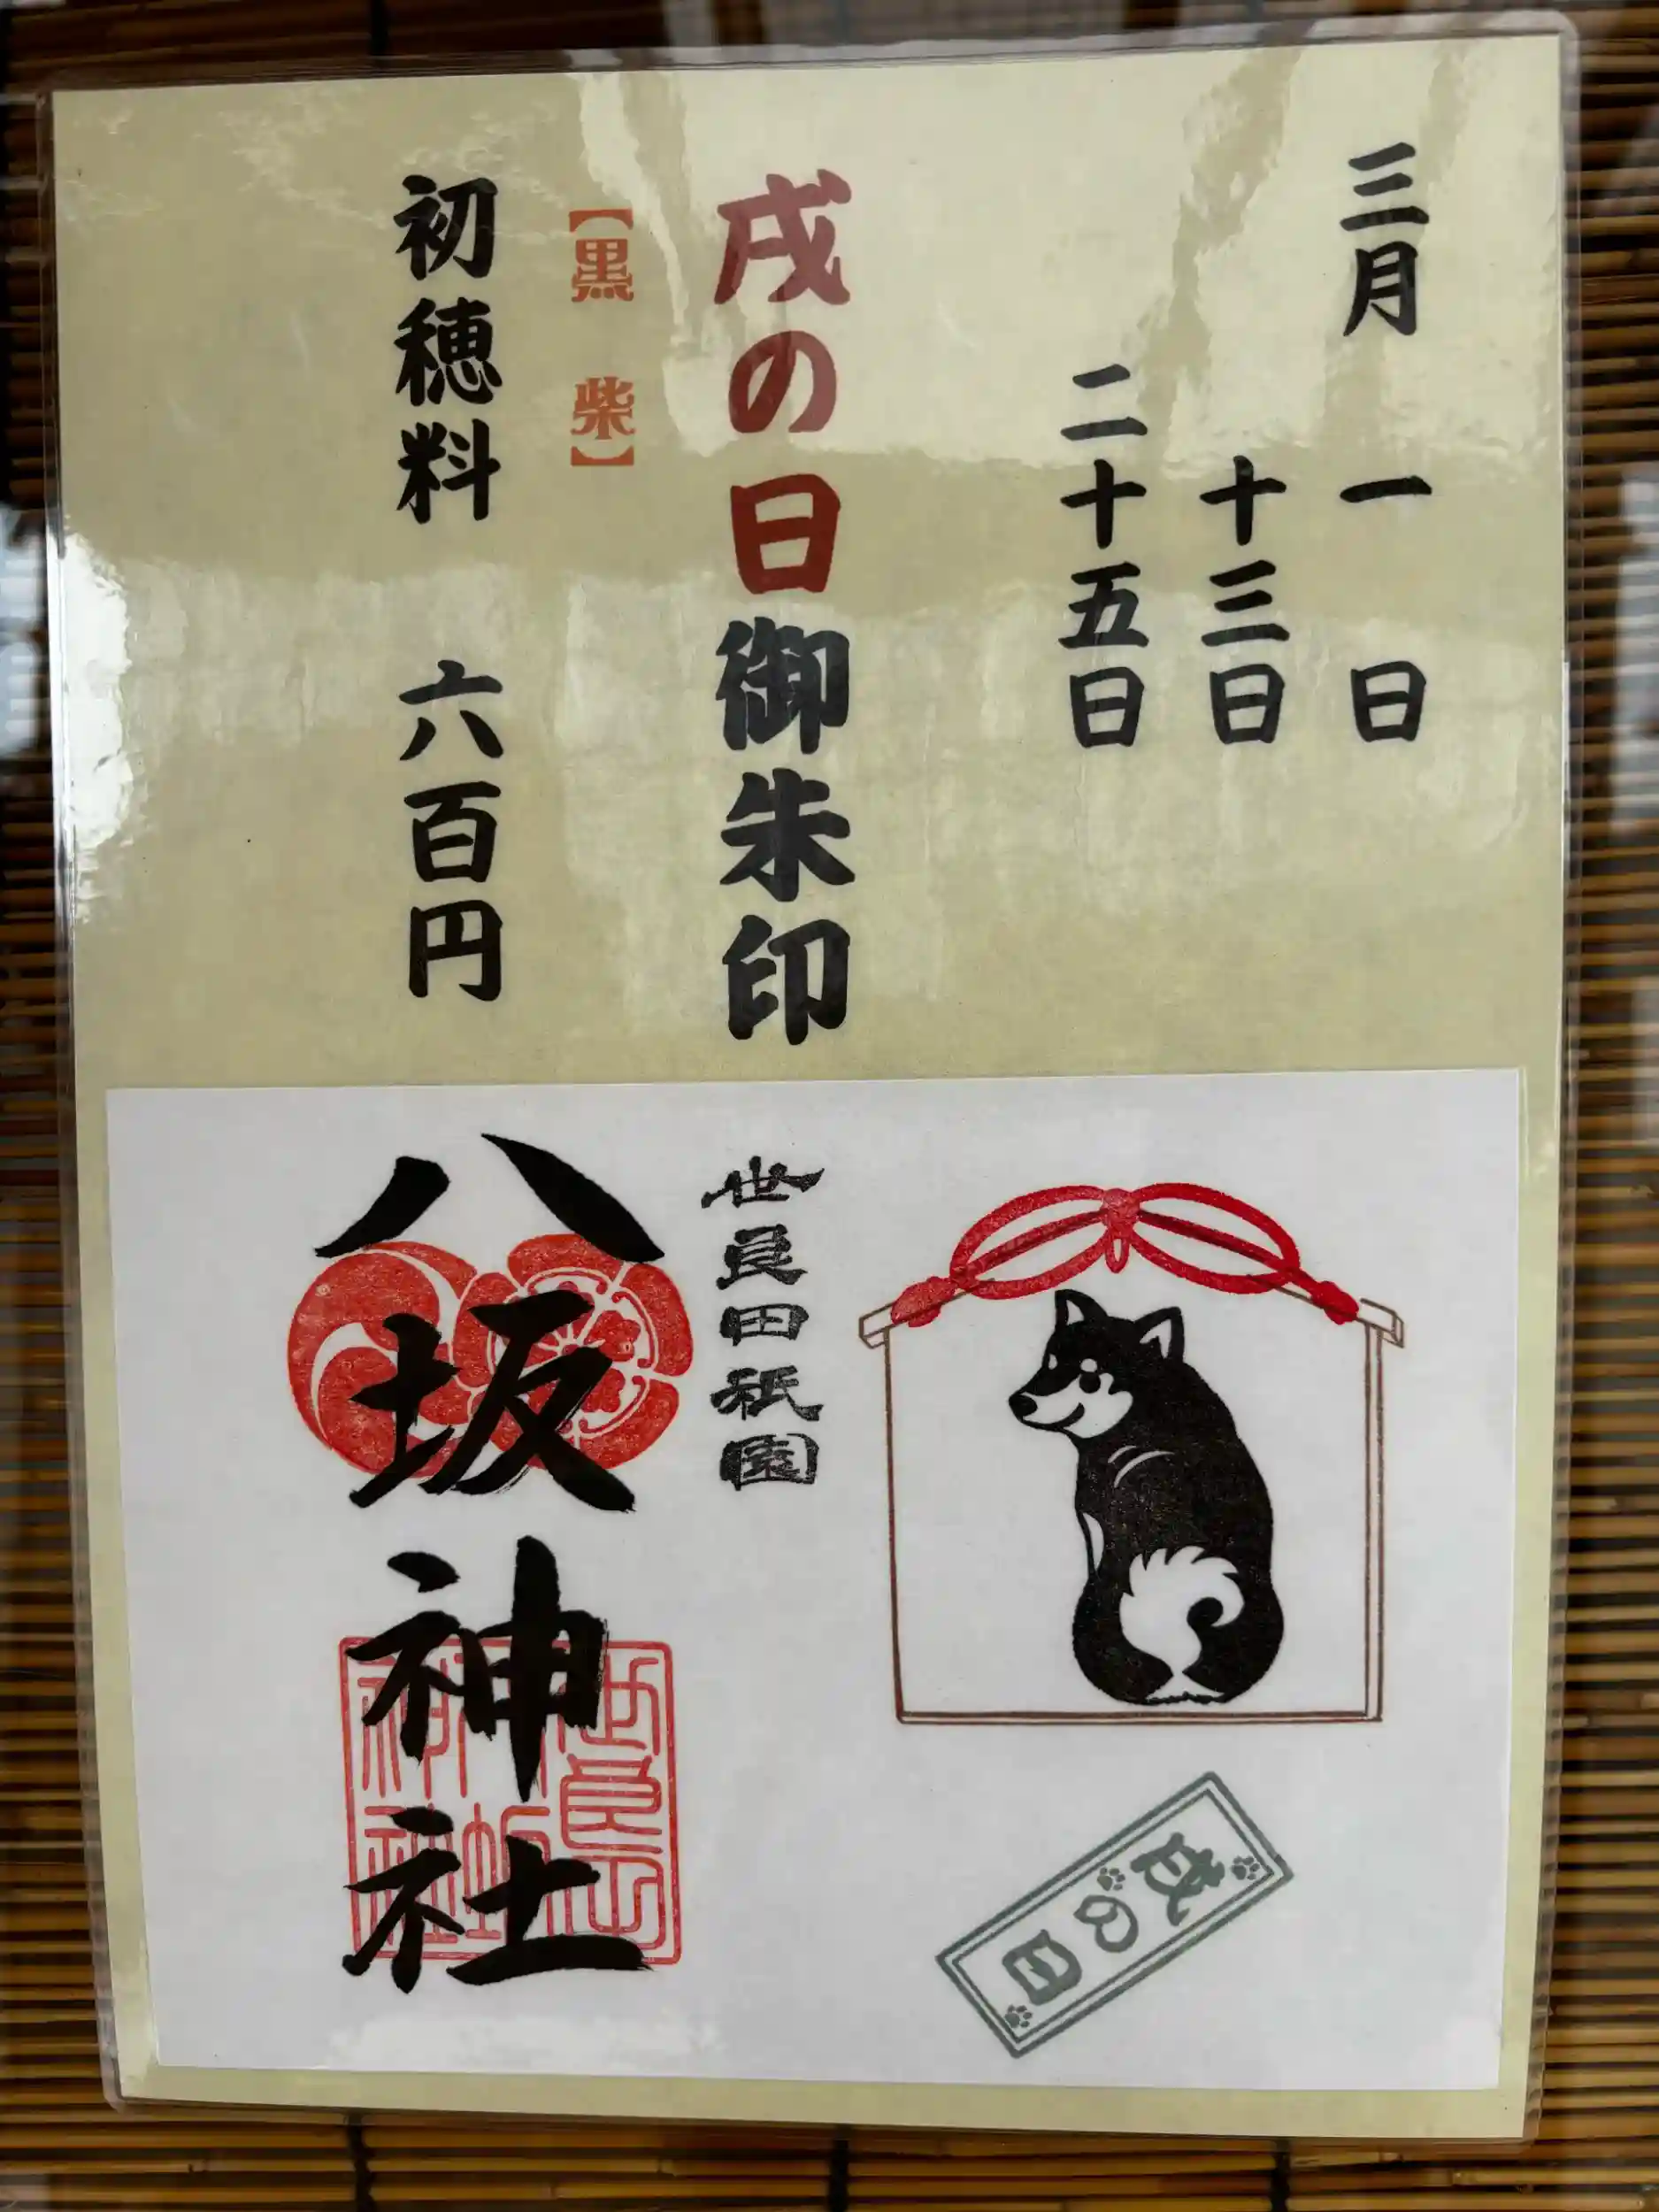 三月 一日
十三日
二十五日
戌の日御朱印
【黒柴】
初穂料 六百円
戌の日
世良田祇園
八坂神社